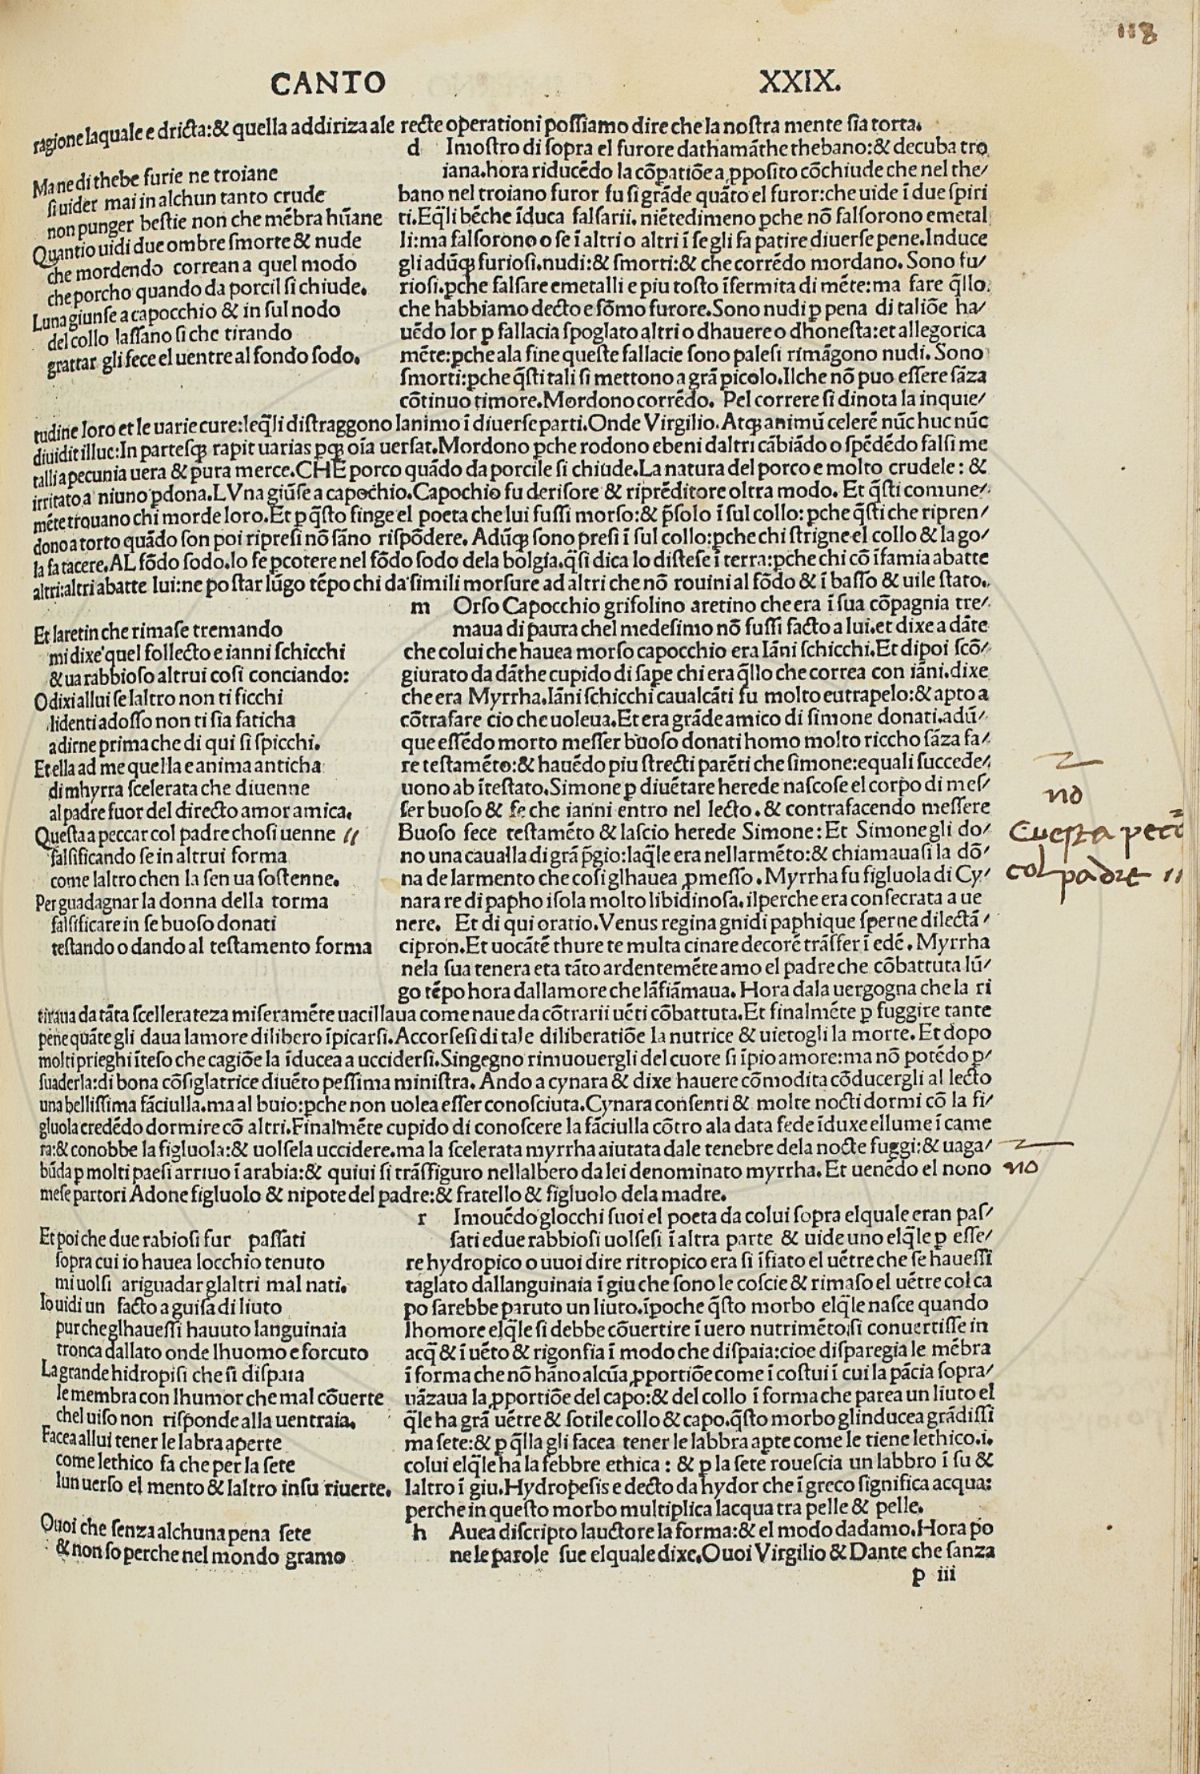 118
CANTO XXIX.
ragione laquale e dricta:& quella addiriza ale recte operationi possiamo dire che la nostra mente sia torta.
Ma ne di thebe furie ne troiane
si uider mai in alchun tanto crude
non punger bestie non che mẽbra hũane
Quantio uidi due ombre smorte & nude
che mordendo correan a quel modo
che porcho quando da porcil si chiude.
Luna giunse a capocchio & in sul nodo
del collo lassano si che tirando
grattar gli fece el uentre al fondo sodo.
d Imostro di sopra el furore dathamãthe thebano:& decuba tro
iana.hora riducẽdo la cõpatiõe a ꝓposito cõchiude che nel the/
bano nel troiano furor fu si grãde quãto el furor:che uide ĩ due spiri
ti.Eq̃li bẽche ĩduca falsarii. niẽtedimeno ꝑche nõ falsorono emetal
li:ma falsorono o se ĩ altri o altri ĩ se gli fa patire diuerse pene.Induce
gli adũqꝫ furiosi.nudi:& smorti:& che corrẽdo mordano. Sono fu/
riosi.ꝑche falsare emetalli e piu tosto ĩfermita di mẽte:ma fare q̃llo.
che habbiamo decto e sõmo furore.Sono nudi ꝑ pena di taliõe ha/
uẽdo lor ꝑ fallacia spoglato altri o dhauere o dhonesta:et allegorica
mẽte:ꝑche ala fine queste fallacie sono palesi rimãgono nudi. Sono
smorti:ꝑche q̃sti tali si mettono a grã picolo.Ilche nõ puo essere sãza
cõtinuo timore.Mordono corrẽdo. Pel correre si dinota la inquie/
tudine loro et le uarie cure:leq̃li distraggono lanimo ĩ diuerse parti.Onde Virgilio.Atqꝫ animũ celerẽ nũc huc nũc
diuidit illuc:In partesqꝫ rapit uarias ꝑqꝫ oĩa uersat.Mordono ꝑche rodono ebeni daltri cãbiãdo o spẽdẽdo falsi me
talli a pecunia uera & pura merce.CHE porco quãdo da porcile si chiude.La natura del porco e molto crudele: &
irritato a niuno ꝑdona.LVna giũse a capochio.Capochio fu derisore & riprẽditore oltra modo. Et q̃sti comune/
mẽte trouano chi morde loro.Et ꝑ q̃sto finge el poeta che lui fussi morso:& p̃solo ĩ sul collo:ꝑche q̃sti che ripren/
dono a torto quãdo son poi ripresi nõ sãno rispõdere. Adũqꝫ sono presi ĩ sul collo:ꝑche chi strigne el collo & la go/
la fa tacere.AL fõdo sodo.lo fe ꝑcotere nel fõdo sodo dela bolgia.q̃si dica lo distese ĩ terra:ꝑche chi cõ ĩfamia abatte
altri:altri abatte lui:ne po star lũgo tẽpo chi da simili morsure ad altri che nõ rouini al fõdo & ĩ basso & uile stato.
Et laretin che rimase tremando
mi dixe quel follecto e ianni schicchi
& ua rabbioso altrui cosi conciando:
O dixi allui se laltro non ti ficchi
lidenti adosso non ti sia faticha
adirne prima che di qui si spicchi.
Et ella ad me quella e anima anticha
di mhyrra scelerata che diuenne
al padre fuor del directo amor amica.
Questa a peccar col padre chosi uenne //
falsificando se in altrui forma
come laltro chen la sen ua sostenne.
Per guadagnar la donna della torma
falsificare in se buoso donati
testando o dando al testamento forma
m Orso Capocchio grifolino aretino che era ĩ sua cõpagnia tre/
maua di paura chel medesimo nõ fussi facto a lui.et dixe a dãte
che colui che hauea morso capocchio era Iãni schicchi.Et dipoi scõ/
giurato da dãthe cupido di sape chi era q̃llo che correa con iãni.dixe
che era Myrrha.Iãni schicchi caualcãti fu molto eutrapelo:& apto a
cõtrafare cio che uoleua.Et era grãde amico di simone donati.adũ/
que essẽdo morto messer buoso donati homo molto riccho sãza fa/
re testamẽto:& hauẽdo piu strecti parẽti che simone:equali succede/
uono ab ĩtestato. Simone ꝑ diuẽtare herede nascose el corpo di mes/
ser buoso & fe che ianni entro nel lecto. & contrafacendo messere
Buoso fece testamẽto & lascio herede Simone: Et Simone gli do/
no una caualla di grã p̃gio:laq̃le era nellarmẽto:& chiamauasi la dõ/
na de larmento che cosi glhauea ꝓmesso. Myrrha fu figluola di Cy/
nara re di papho isola molto libidinosa.ilperche era consecrata a ue
nere. Et di qui oratio. Venus regina gnidi paphique sperne dilectã/
cipron.Et uocãtẽ thure te multa cinare decorẽ trãsfer ĩ edẽ. Myrrha
nela sua tenera eta tãto ardentemẽte amo el padre che cõbattuta lũ/
go tẽpo hora dallamore che lãfiãmaua. Hora dala uergogna che la ri
tiraua da tãta scellerateza miseramẽte uacillaua come naue da cõtrarii uẽti cõbattuta.Et finalmẽte ꝑ fuggire tante
pene quãte gli daua lamore dilibero ĩpicarsi. Accorsesi di tale diliberatiõe la nutrice & uietogli la morte. Et dopo
molti prieghi ĩteso che cagiõe la ĩducea a uccidersi.Singegno rimuouergli del cuore si ĩpio amore:ma nõ potẽdo ꝑ/
suaderla:di bona cõsiglatrice diuẽto pessima ministra. Ando a cynara & dixe hauere cõmodita cõducergli al lecto
una bellissima fãciulla.ma al buio:ꝑche non uolea esser conosciuta.Cynara consenti & molte nocti dormi cõ la fi/
gluola credẽdo dormire cõ altri.Finalmẽte cupido di conoscere la fãciulla cõtro ala data fede ĩduxe ellume ĩ came
ra:& conobbe la figluola:& uolsela uccidere.ma la scelerata myrrha aiutata dale tenebre dela nocte fuggi:& uaga/
bũda ꝑ molti paesi arriuo ĩ arabia:& quiui si trãsfiguro nellalbero da lei denominato myrrha. Et uenẽdo el nono
mese partori Adone figluolo & nipote del padre:& fratello & figluolo dela madre.
no
Cuesta pecc
col padre //
no
Et poi che due rabiosi fur passati
sopra cui io hauea locchio tenuto
mi uolsi ariguadar glaltri mal nati.
Io uidi un facto a guisa di liuto
pur che glhauessi hauuto languinaia
tronca dallato onde lhuomo e forcuto
La grande hidropisi che si dispaia
le membra con lhumor che mal cõuerte
chel uiso non risponde alla uentraia.
Facea allui tener le labra aperte
come lethico fa che per la sete
lun uerso el mento & laltro insu riuerte.
r Imouẽdo glocchi suoi el poeta da colui sopra elquale eran pas/
sati edue rabbiosi uolsesi ĩ altra parte & uide uno elq̃le ꝑ esse/
re hydropico o uuoi dire ritropico era si ĩfiato el uẽtre che se hauessi
taglato dallanguinaia ĩ giu che sono le coscie & rimaso el uẽtre col ca
po sarebbe paruto un liuto.ĩpoche q̃sto morbo elq̃le nasce quando
lhomore elq̃le si debbe cõuertire ĩ uero nutrimẽto:si conuertisse in
acq̃ & ĩ uẽto & rigonfia ĩ modo che dispaia:cioe disparegia le mẽbra
ĩ forma che nõ hãno alcũa ꝓportiõe come ĩ costui ĩ cui la pãcia sopra/
uãzaua la ꝓportiõe del capo:& del collo ĩ forma che parea un liuto el
q̃le ha grã uẽtre & sotile collo & capo.q̃sto morbo glinducea grãdissi
ma sete:& ꝑ q̃lla gli facea tener le labbra apte come le tiene lethico.i.
colui elq̃le ha la febbre ethica : & ꝑ la sete rouescia un labbro ĩ su &
laltro ĩ giu.Hydropesis e decto da hydor che ĩ greco significa acqua:
perche in questo morbo multiplica lacqua tra pelle & pelle.
O uoi che senza alchuna pena sete
& non so perche nel mondo gramo
h Auea discripto lauctore la forma:& el modo dadamo.Hora po
ne le parole sue elquale dixe.O uoi Virgilio & Dante che sanza
p iii